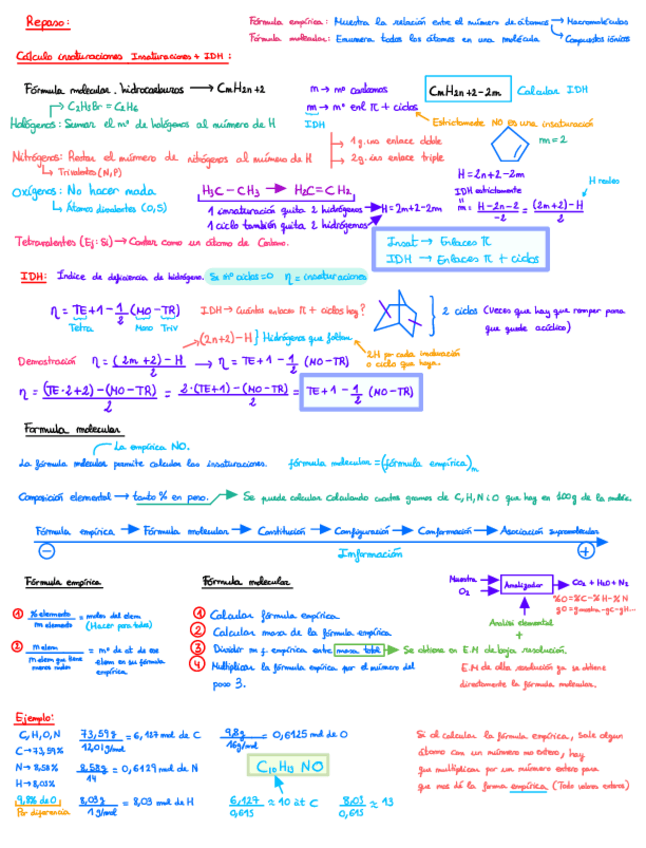 Repaso:
Fórmula empírica: Muestra la relación entre el número de átomos → Macromoléculas
Fórmula molecular: Enumera todos los átomos en una molécula → Compuestos iónicos
Cálculo insaturaciones Insaturaciones + IDH:
Fórmula molecular. hidrocarburos → CnH2n+2
n → nº carbonos
CnH2n+2-2m
Calcular IDH
→ C2H5Br = C2H6
m → nº enl π + ciclos
Halógenos: Sumar el nº de halógenos al número de H
IDH
Estrictamente NO es una insaturación
→ 1 g.ins enlace doble
m = 2
Nitrógenos: Restar el número de nitrógenos al número de H
→ 2 g.ins enlace triple
↳ Trivalentes (N,P)
H = 2n+2-2m
H reales
Oxígenos: No hacer nada
H3C - CH3 → H2C = CH2
IDH estrictamente
↳ Átomos divalentes (O,S)
1 insaturación quita 2 hidrógenos → H = 2n+2-2m
m = H-2n-2 / -2 = (2n+2)-H / 2
1 ciclo también quita 2 hidrógenos
Tetravalentes (Ej: Si) → Contar como un átomo de Carbono.
Insat → Enlaces π
IDH → Enlaces π + ciclos
IDH: Índice de deficiencia de hidrógeno. Si nº ciclos = 0 η = insaturaciones
η = TE + 1 - 1/2 (MO - TR)
IDH → Cuántos enlaces π + ciclos hay?
2 ciclos (veces que hay que romper para
Tetra Mono Triv
que quede acíclico)
(2n+2) - H } Hidrógenos que faltan
Demostración η = (2n+2) - H / 2 → η = TE + 1 - 1/2 (MO - TR)
2H por cada insaturación
o ciclo que haya.
η = (TE·2+2) - (MO-TR) / 2 = 2·(TE+1) - (MO-TR) / 2 = TE + 1 - 1/2 (MO-TR)
Formula molecular
La empírica NO.
La fórmula molecular permite calcular las insaturaciones. fórmula molecular = (fórmula empírica)n
Composición elemental → tanto % en peso. → Se puede calcular calculando cuantos gramos de C, H, N i O que hay en 100g de la
Fórmula empírica → Fórmula molecular → Constitución → Configuración → Conformación → Asociación supramolecular
- Información +
Fórmula empírica
Fórmula molecular
Muestra
O2
Analizador
CO2 + H2O + N2
%O = %C - %H - %N
gO = gmuestra - gC - gH...
1 % elemento / m elemento = moles del elem
(Hacer para todos)
1 Calcular fórmula empírica
2 Calcular masa de la fórmula empírica
Análisi elemental
+
2 n elem / n elem que tiene menos moles = nº de at de ese elem en su fórmula empírica
3 Dividir m f. empírica entre masa total → Se obtiene en E.M de baja resolución.
4 Multiplicar la fórmula empírica por el número del
paso 3.
E.M de alta resolución ya se obtiene
directamente la fórmula molecular.
Ejemplo:
C, H, O, N
73,59g / 12,01 g/mol = 6,127 mol de C
9,8g / 16g/mol = 0,6125 mol de O
C → 73,59%
N → 8,58%
8,58g / 14 = 0,6129 mol de N
C10H13NO
H → 8,03%
9,8% de O
Por diferencia
8,03g / 1g/mol = 8,03 mol de H
6,127 / 0,615 ≈ 10 at C
8,03 / 0,615 ≈ 13
Si al calcular la fórmula empírica, sale algun
átomo con un número no entero, hay
que multiplicar por un número entero para
que nos dé la forma empírica (Todo valores enteros)